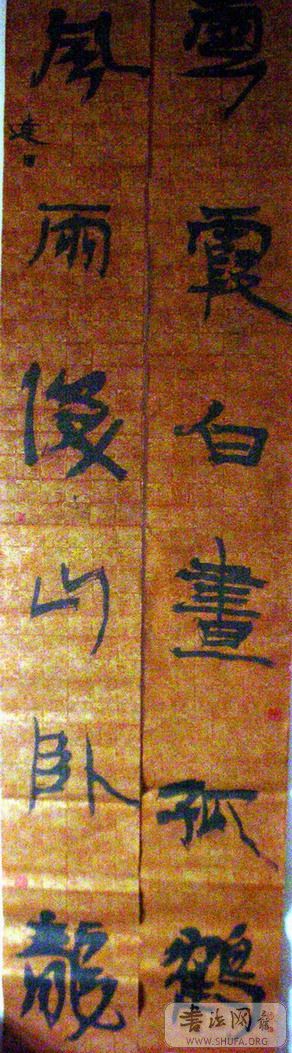 雲霞白晝孤鶴
風雨後山卧龍
书法网
WWW.SHUFA.ORG